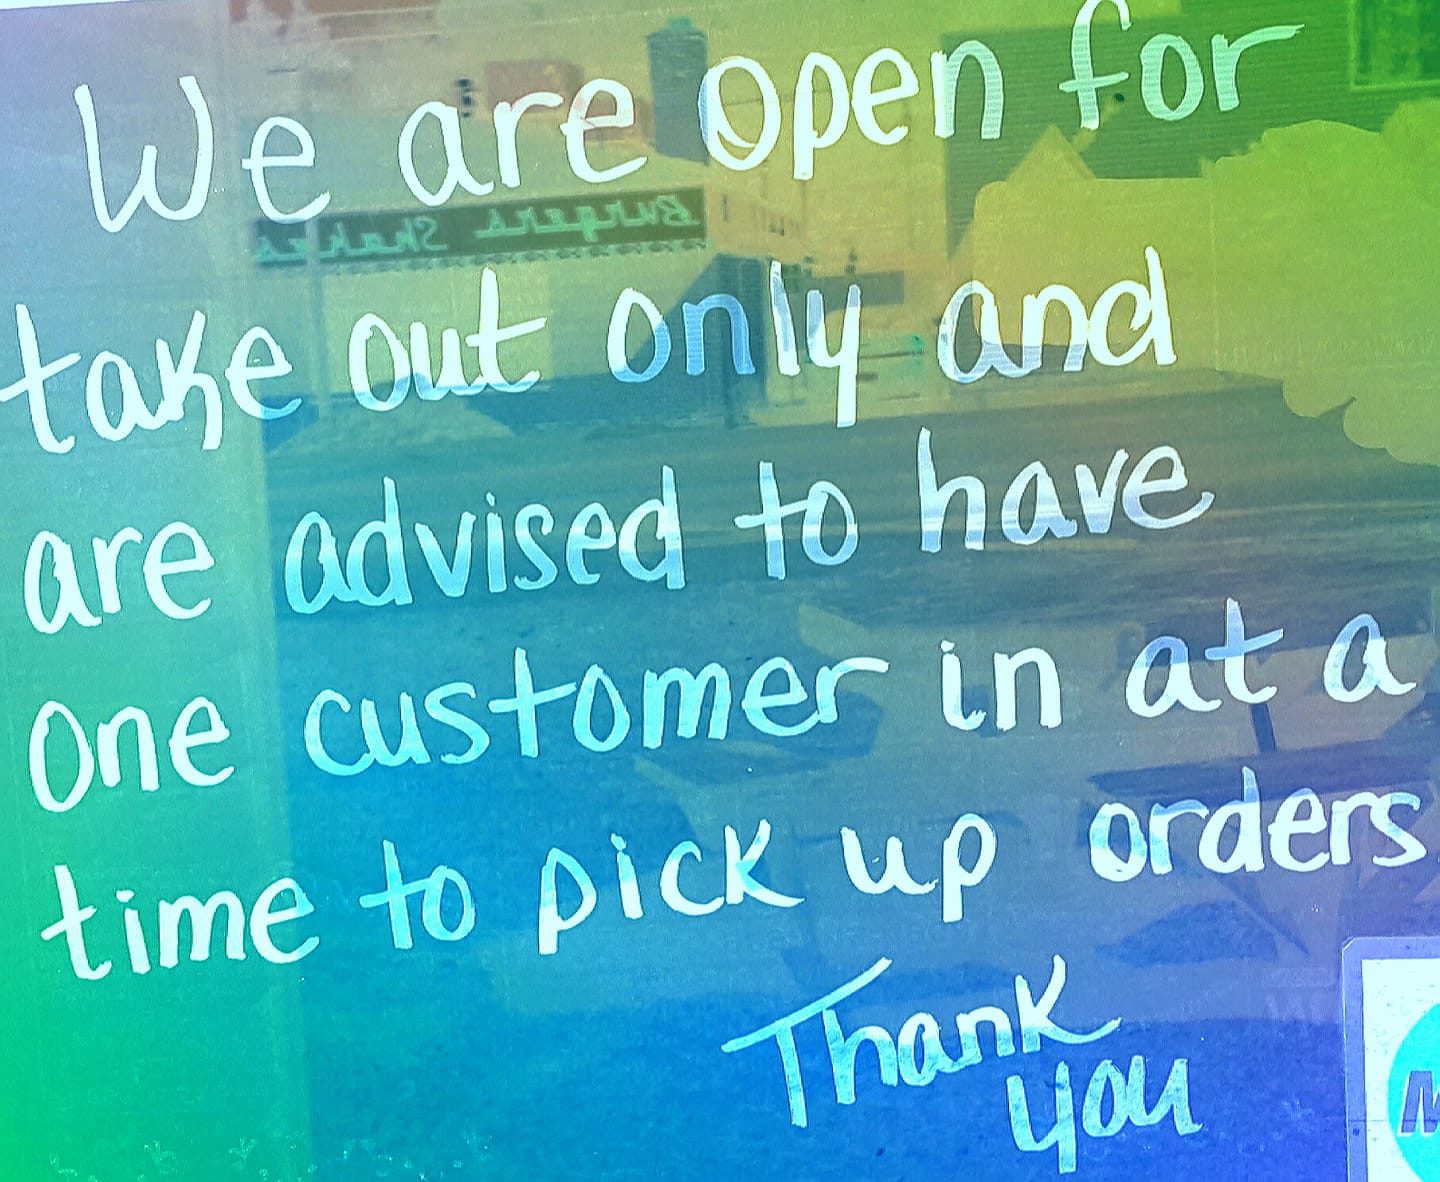 We are open for
Burgers Shakes
take out only and
are advised to have
one customer in at a
time to pick up orders
Thank
you
M